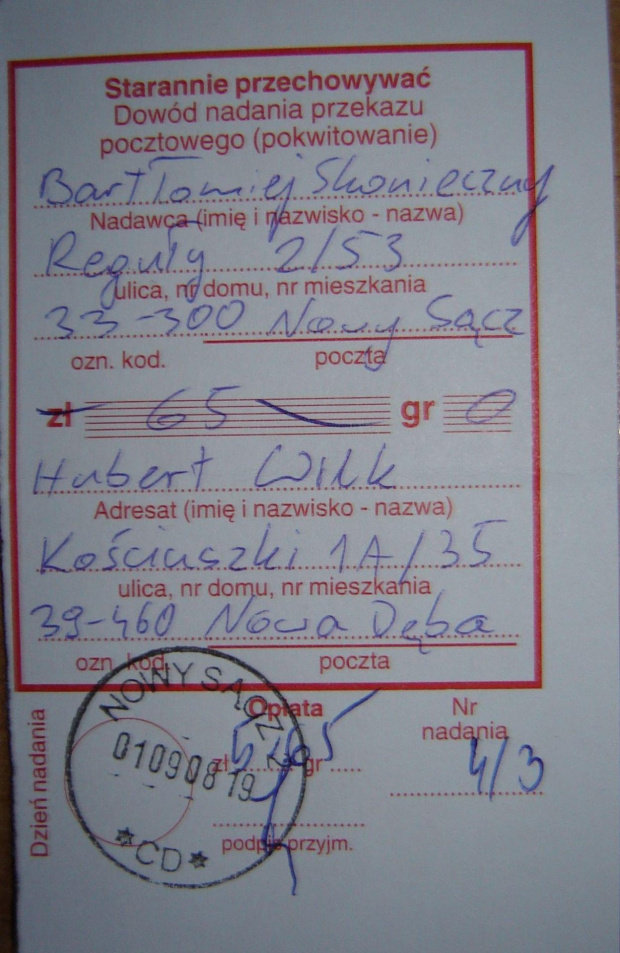 Starannie przechowywać
Dowód nadania przekazu
pocztowego (pokwitowanie)
Bartłomiej Skonieczny
Nadawca (imię i nazwisko - nazwa)
Reguły 2/53
ulica, nr domu, nr mieszkania
33-300 Nowy Sącz
ozn. kod. poczta
zł 65 gr 0
Hubert Wilk
Adresat (imię i nazwisko - nazwa)
Kościuszki 1A/35
ulica, nr domu, nr mieszkania
39-460 Nowa Dęba
ozn. kod. poczta
Dzień nadania
NOWY SĄCZ
010908 19
*CD*
Opłata
zł gr
podpis przyjm.
Nr
nadania
4/3